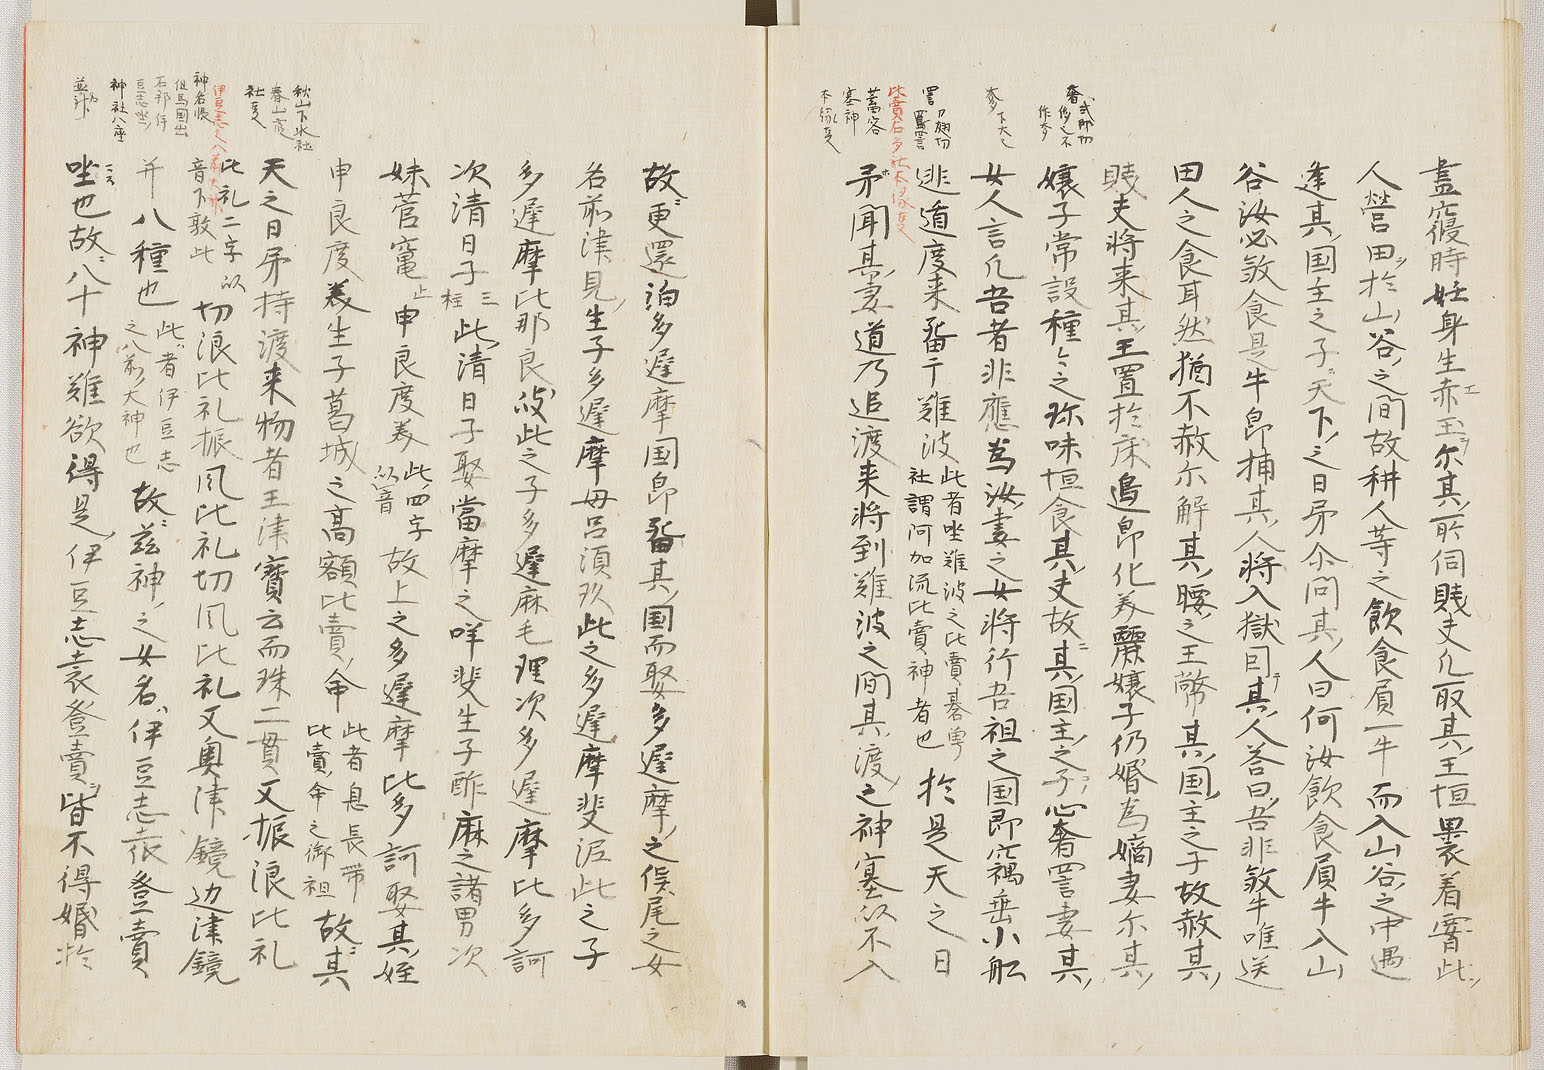 晝寝時妊身生赤玉尓其所伺賤夫乞取其玉恒裹着䆴此
人營田於山谷之間故耕人等之飲食屓一牛而入山谷之中遇
逢其国主之子天下之日矛尓問其人曰何汝飲食屓牛入山
谷汝必敓食是牛即捕其人将入獄囙其人荅曰吾非敓牛唯送
田人之食耳然猶不赦尓解其腰之玉幣其国主之子故赦其
賤夫将来其玉置於床邊即化美麗嬢子仍婚為嫡妻尓其
奢 式邪切
侈也不
作奓
嬢子常設種々之珎味恒食其夫故其国主之子心奢詈妻其
奓下大也
女人言凡吾者非應為汝妻之女将行吾祖之国即竊乗小舩
詈 力翅切
罵詈
逃道度来畱于難波 此者坐難波之比賣碁曽
社謂阿加流比賣神者也 於是天之日
比賣石多社本縁㕝
蕃客
塞神
本縁㕝
矛聞其妻道乃追渡来将到難波之間其渡之神塞以不入
故更還泊多遅摩国即畱其国而娶多遅摩之俣尾之女
名前津見生子多遅摩母呂須玖此之多遅摩斐泥此之子
多遅摩比那良岐此之子多遅麻毛理次多遅摩比多訶
次清日子 三柱 此清日子娶當摩之咩斐生子酢麻之諸男次
妹菅竈 上 申良度美 此四字
以音 故上之多遅摩比多訶娶其姪
申良度美生子葛城之高額比賣命 此者息長帯
比賣命之御祖 故其
秋山下氷社
春山霞
社㕝
天之日矛持渡来物者玉津寶云而珠二貫又振浪比礼
伊豆志之八前大神
比礼二字以
音下敦此 切浪比礼振風比礼切風比礼又奥津鏡邊津鏡
神名帳
但馬国出
石郡伊
豆志坐
神社八座
并八種也 此者伊豆志
之八前大神也 故茲神之女名伊豆志袁登賣
並
坐也故八十神雖欲得是伊豆志袁登賣皆不得婚於